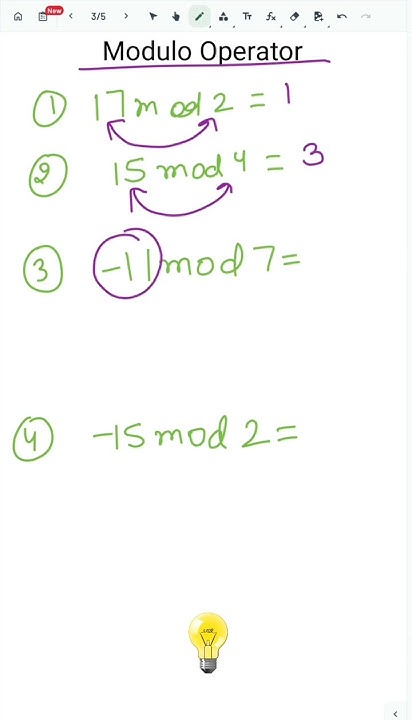 New
3/5
Modulo Operator
① 17 mod 2 = 1
② 15 mod 4 = 3
③ -11 mod 7 =
④ -15 mod 2 =